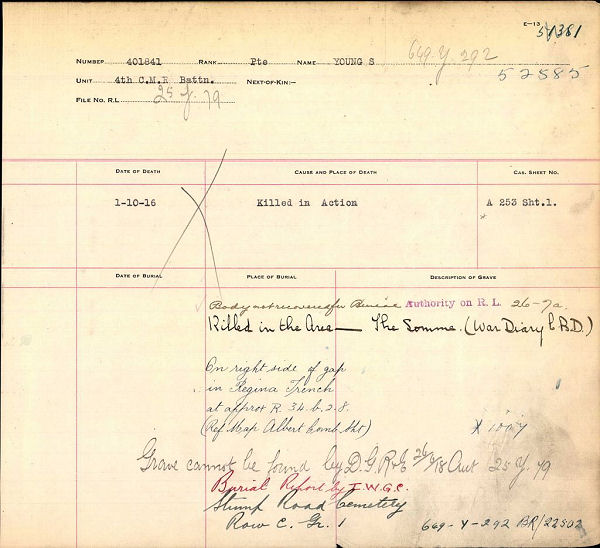 E-13
51381
NUMBER 401841 RANK Pte NAME YOUNG S 649-Y-292
UNIT 4th C.M.R Battn. NEXT-OF-KIN:- 52585
FILE NO. R.L. 25 Y. 79
DATE OF DEATH CAUSE AND PLACE OF DEATH CAS. SHEET NO.
1-10-16 Killed in Action A 253 Sht.1.
*
DATE OF BURIAL PLACE OF BURIAL DESCRIPTION OF GRAVE
Body not recovered for Burial Authority on R. L. 26-7a.
Killed in the Area — The Somme. (War Diary & B.D.)
On right side of gap
in Regina Trench
at approx R. 34. b. 2. 8.
(Ref Map Albert Comb. Sht)
X 1007
Grave cannot be found by D.G.R&E 25 Y. 79
Burial Report by I.W.G.C.
Stump Road Cemetery
Row C. Gr. 1 649-Y-292 BR/22502